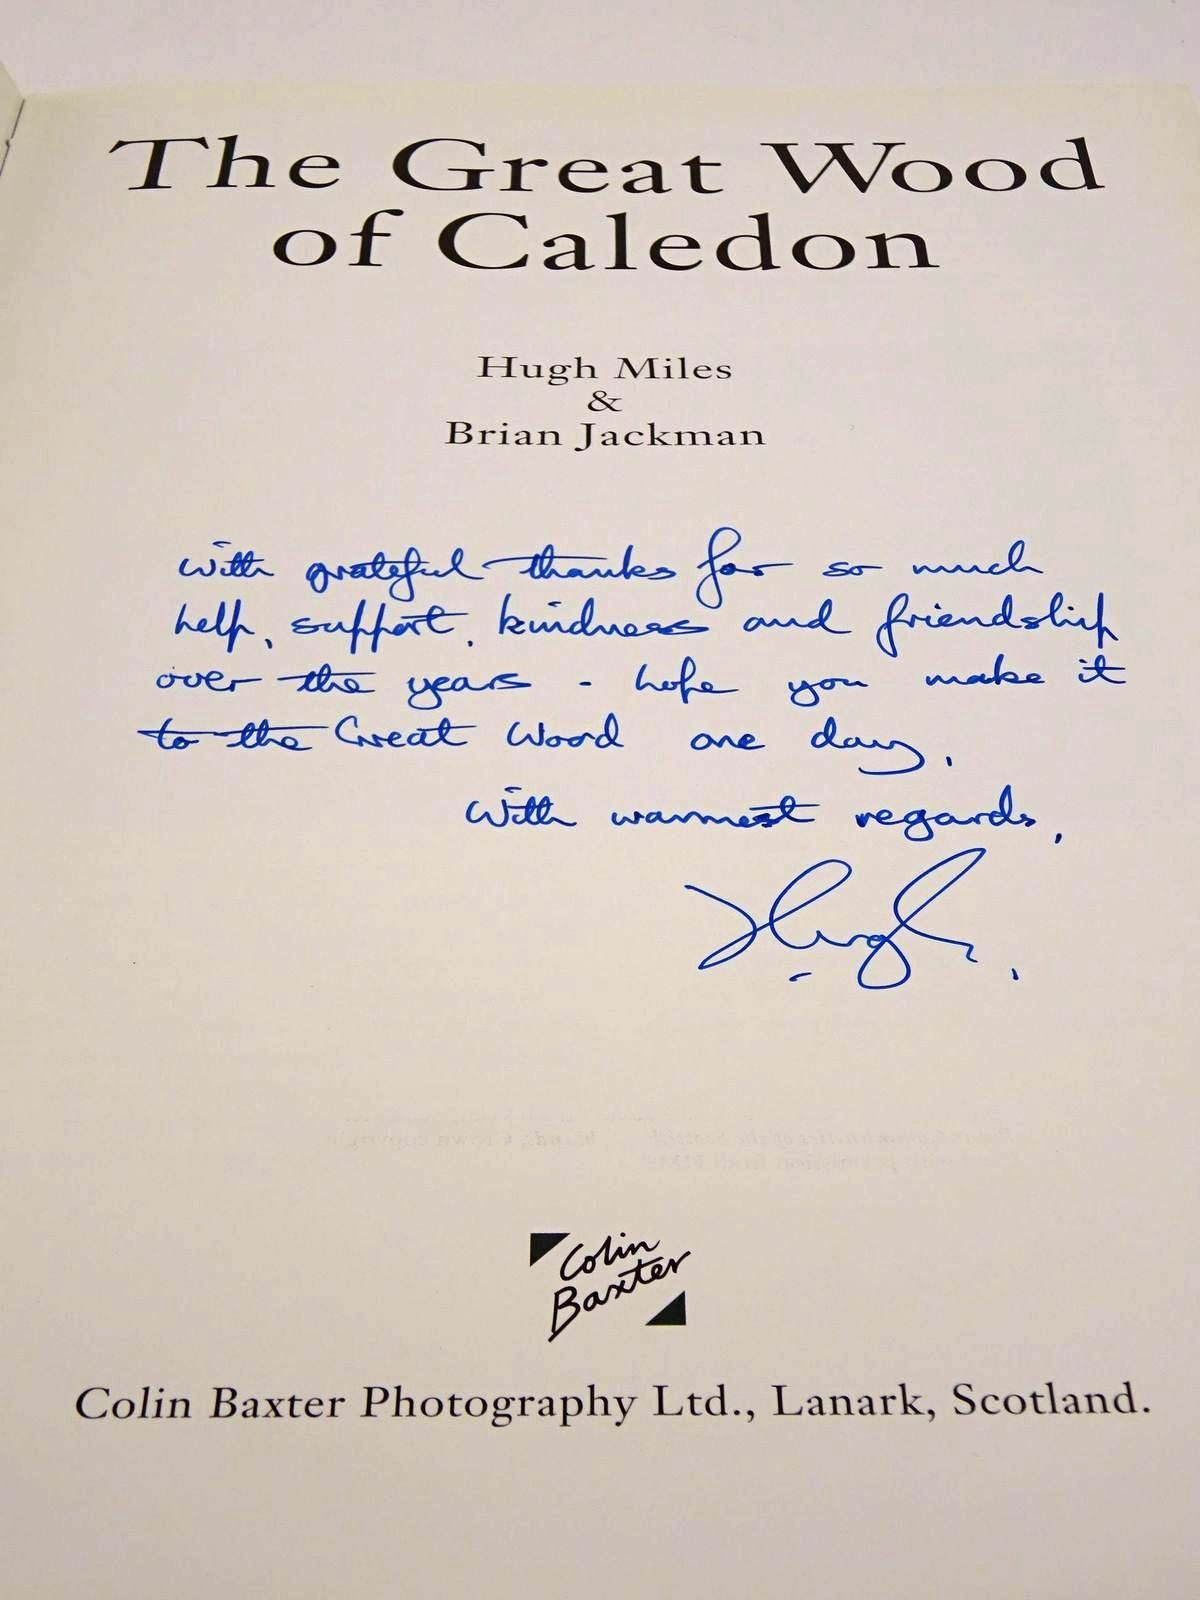 The Great Wood
of Caledon
Hugh Miles
&
Brian Jackman
With grateful thanks for so much
help, support, kindness and friendship
over the years - hope you make it
to the Great Wood one day.
With warmest regards,
Hugh.
Colin
Baxter
Colin Baxter Photography Ltd., Lanark, Scotland.